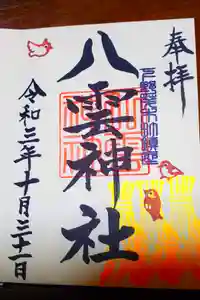 奉拝
八雲神社
令和三年十月三十一日